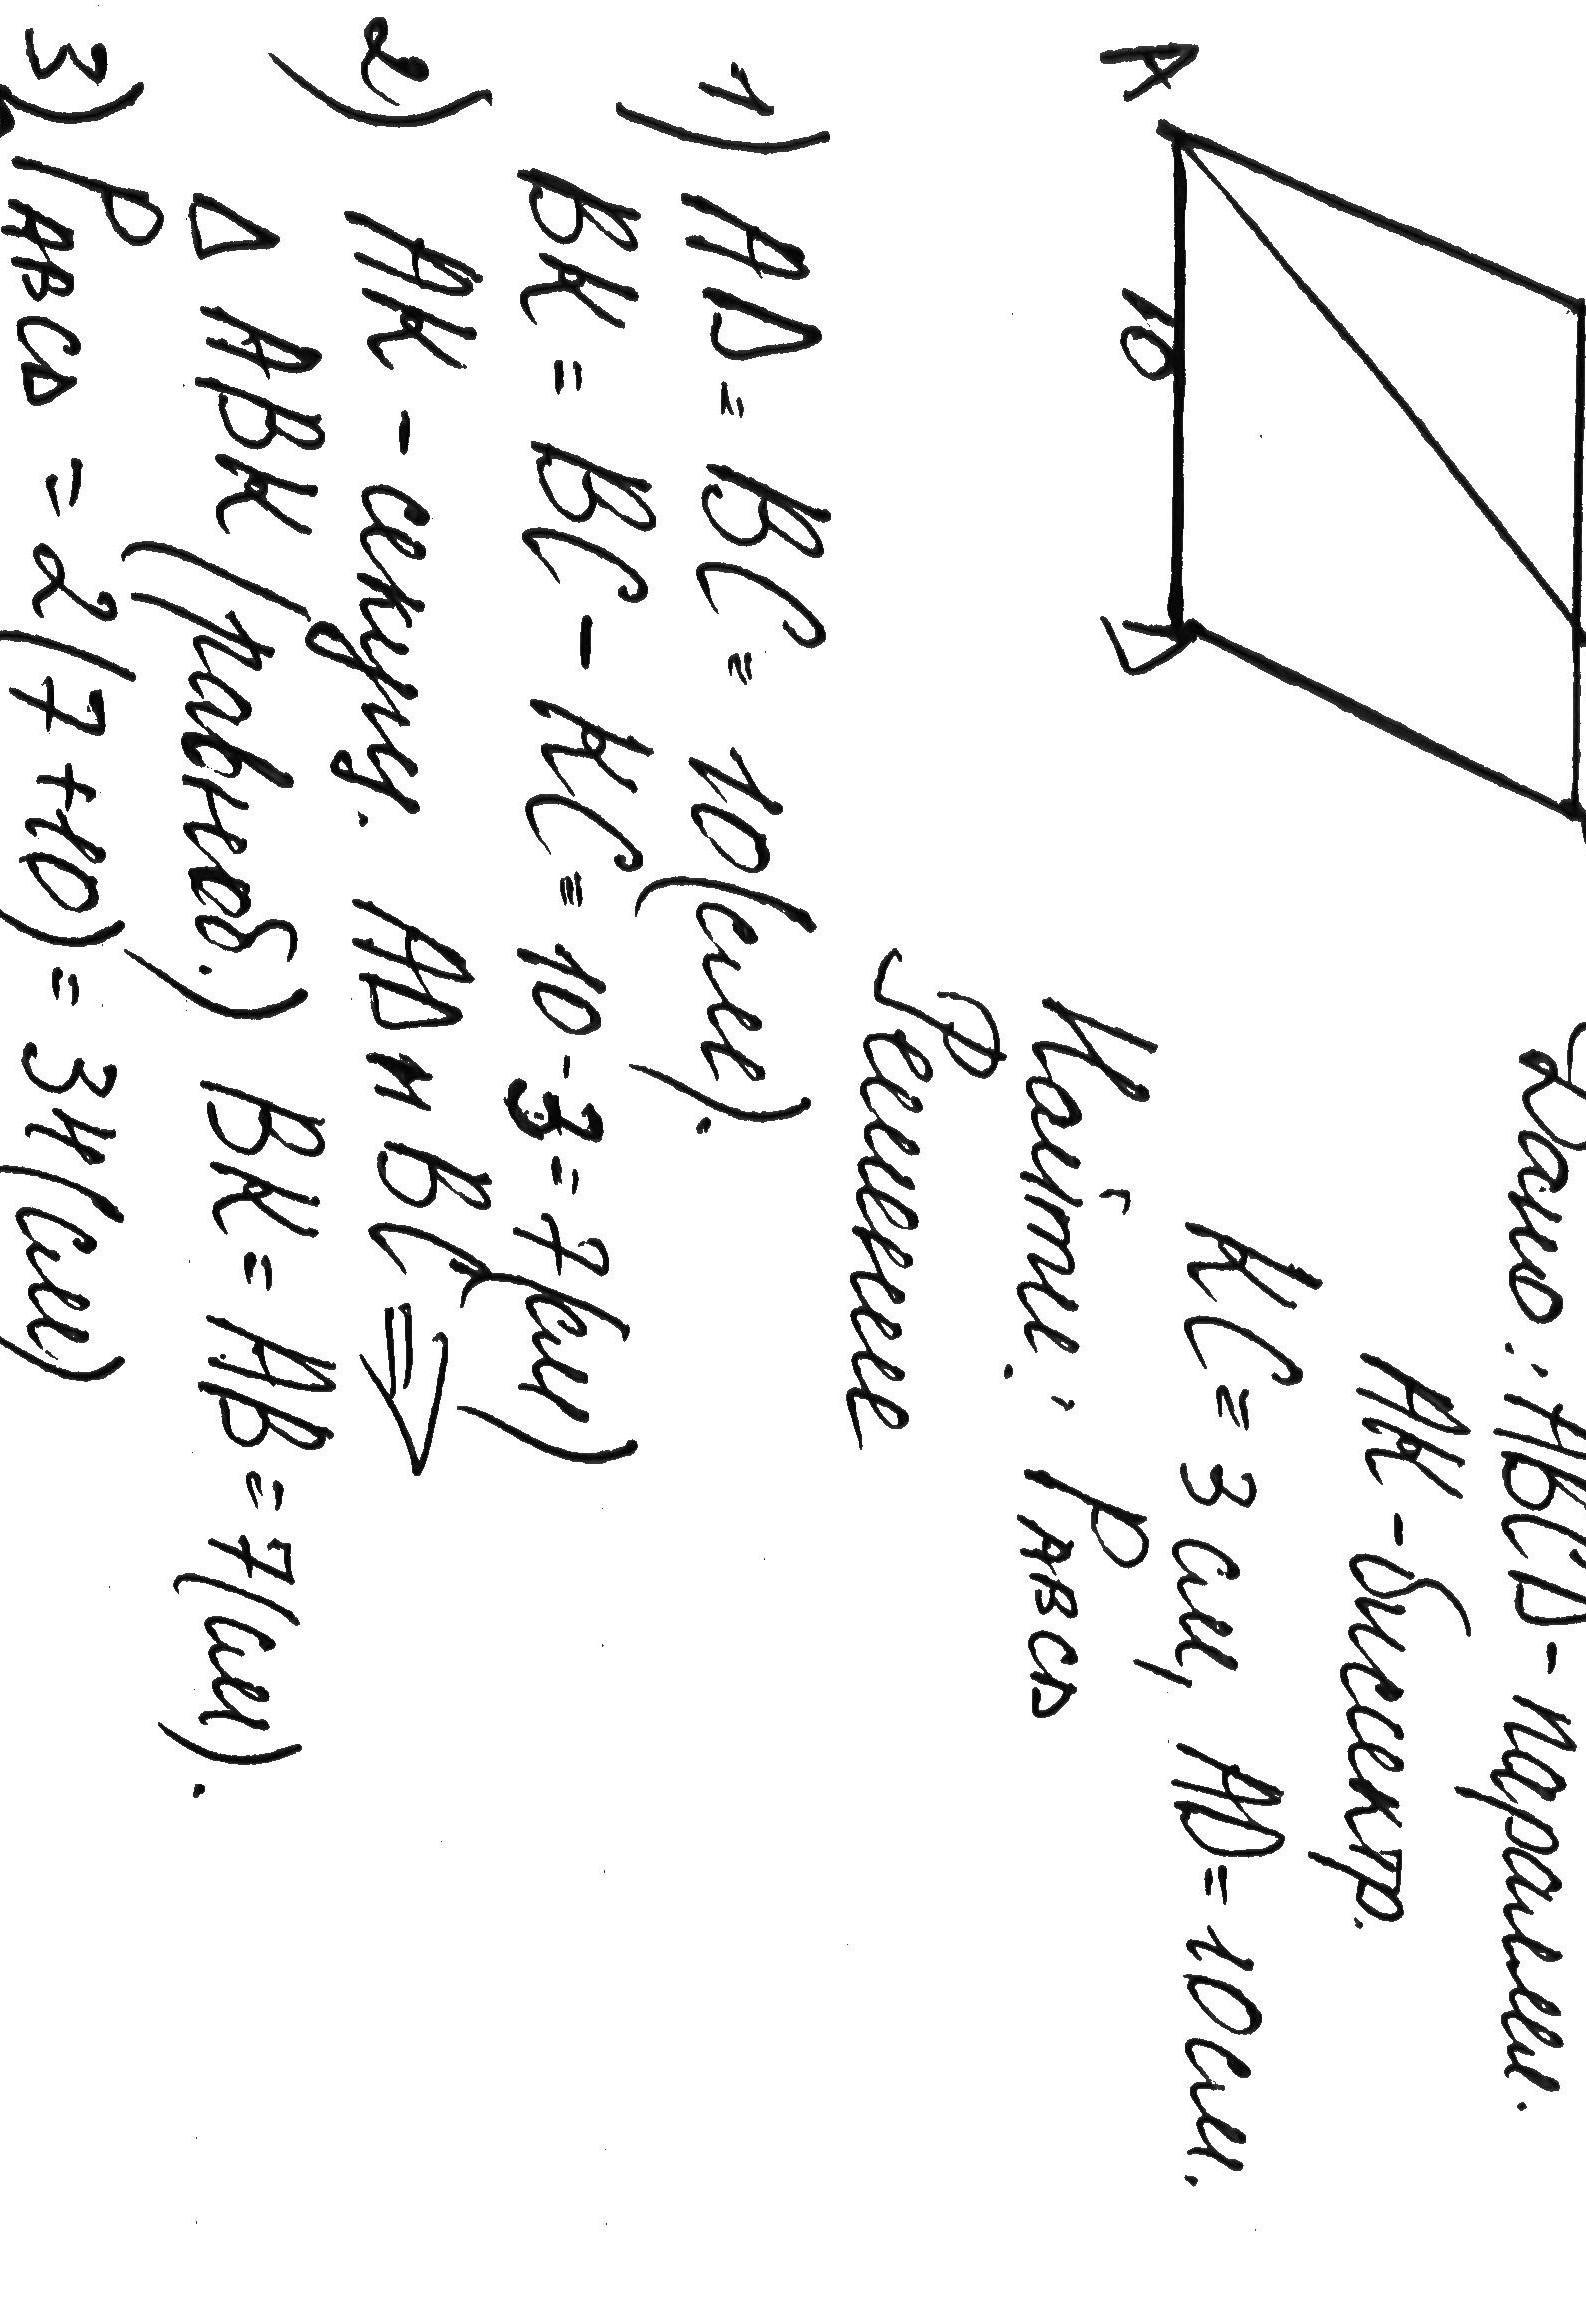 Дано: ABCD - паралл.
AK - биссектр.
KC = 3 см, AD = 10 см.
Найти: P ABCD
A
10
D
Решение
1) AD = BC = 10 (см).
BK = BC - KC = 10 - 3 = 7 (см)
2) AK - секущ. AD и BC ⇒
Δ ABK (равноб.) BK = AB = 7 (см).
3) P ABCD = 2(7+10) = 34 (см)